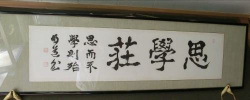 思學莊
思而不
學則殆